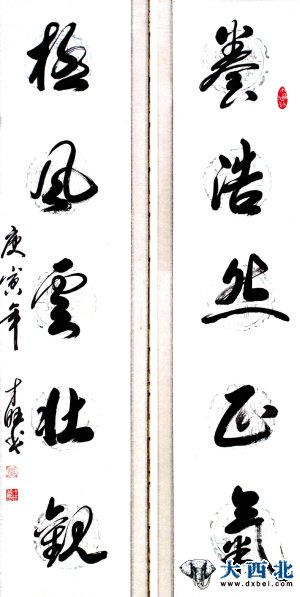 養浩然正氣
極風雲壯觀
庚寅年
大西北
www.dxbei.com